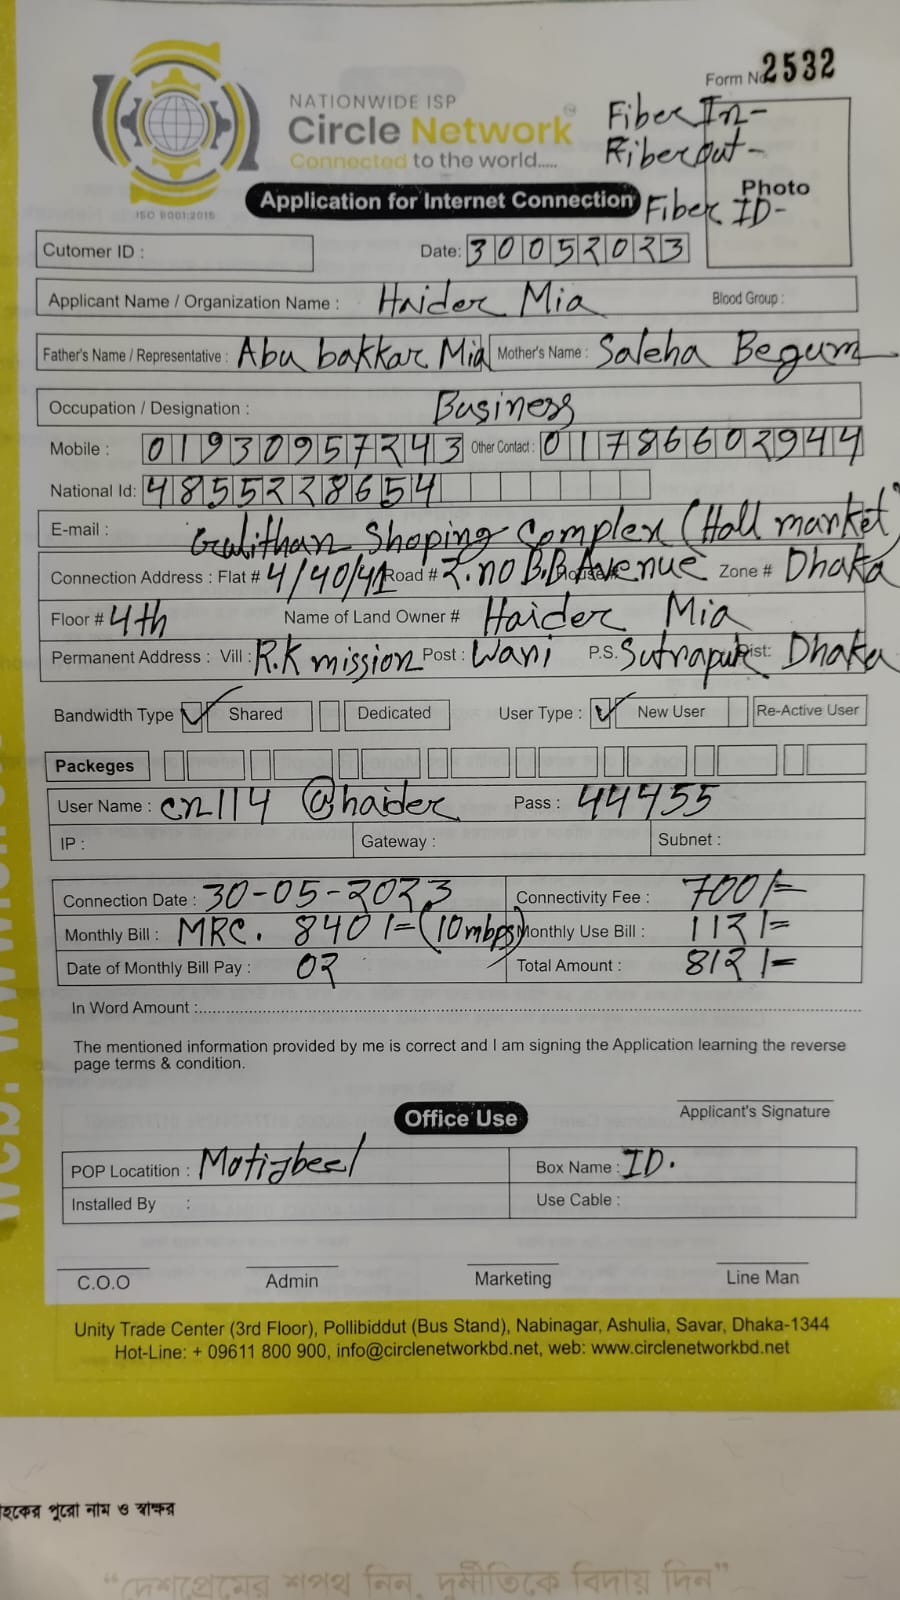 Form No 2532
NATIONWIDE ISP
Circle Network
Connected to the world.....
ISO 9001:2015
Fiber In-
Fiber out-
Fiber ID-
Photo
Application for Internet Connection
Cutomer ID :
Date: 30052023
Applicant Name / Organization Name : Haider Mia Blood Group :
Father's Name / Representative : Abu bakkar Mia Mother's Name : Saleha Begum
Occupation / Designation : Business
Mobile : 01930957243 Other Contact : 01786602944
National Id: 4855228654
E-mail :
Gulithan Shoping Complex (Hall market)
Connection Address : Flat # 4/40/41 Road # 2.no B.B Avenue House # Zone # Dhaka
Floor # 4th Name of Land Owner # Haider Mia
Permanent Address : Vill : R.K mission Post : Wari P.S. Sutrapur Dist: Dhaka
Bandwidth Type ✓ Shared Dedicated User Type : ✓ New User Re-Active User
Packeges
User Name : cn114 @haider Pass : 44455
IP : Gateway : Subnet :
Connection Date : 30-05-2023 Connectivity Fee : 700/=
Monthly Bill : MRC. 840/= (10mbps) Monthly Use Bill : 112/=
Date of Monthly Bill Pay : 02 Total Amount : 812/=
In Word Amount :
The mentioned information provided by me is correct and I am signing the Application learning the reverse
page terms & condition.
Applicant's Signature
Office Use
POP Locatition : Motijbeel Box Name : ID.
Installed By : Use Cable :
C.O.O Admin Marketing Line Man
Unity Trade Center (3rd Floor), Pollibiddut (Bus Stand), Nabinagar, Ashulia, Savar, Dhaka-1344
Hot-Line: + 09611 800 900, info@circlenetworkbd.net, web: www.circlenetworkbd.net
হকের পুরো নাম ও স্বাক্ষর
“দেশপ্রেমের শপথ নিন, দুর্নীতিকে বিদায় দিন”